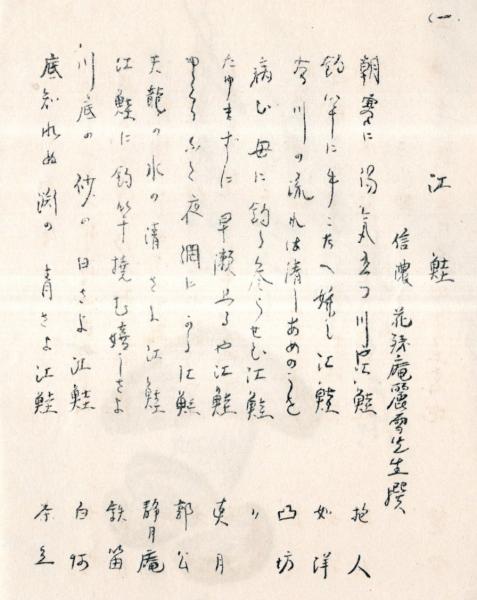 (一)
江鮭
信濃 花残庵麗雪先生撰
朝寒に湯気立つ川や江鮭 抱人
釣竿に手ごたへ嬉し江鮭 如洋
有川の流れは清しあめのうを 凸坊
病む母に釣り参らせむ江鮭 〃
たゆまずに早瀬上るや江鮭 東月
夜網にかゝる江鮭 郭公
天龍の水の清さよ江鮭 静月庵
江鮭に釣竿撓む嬉しさよ 鉄笛
川底の砂の白さよ江鮭 白河
底知れぬ淵の青さよ江鮭 奈立